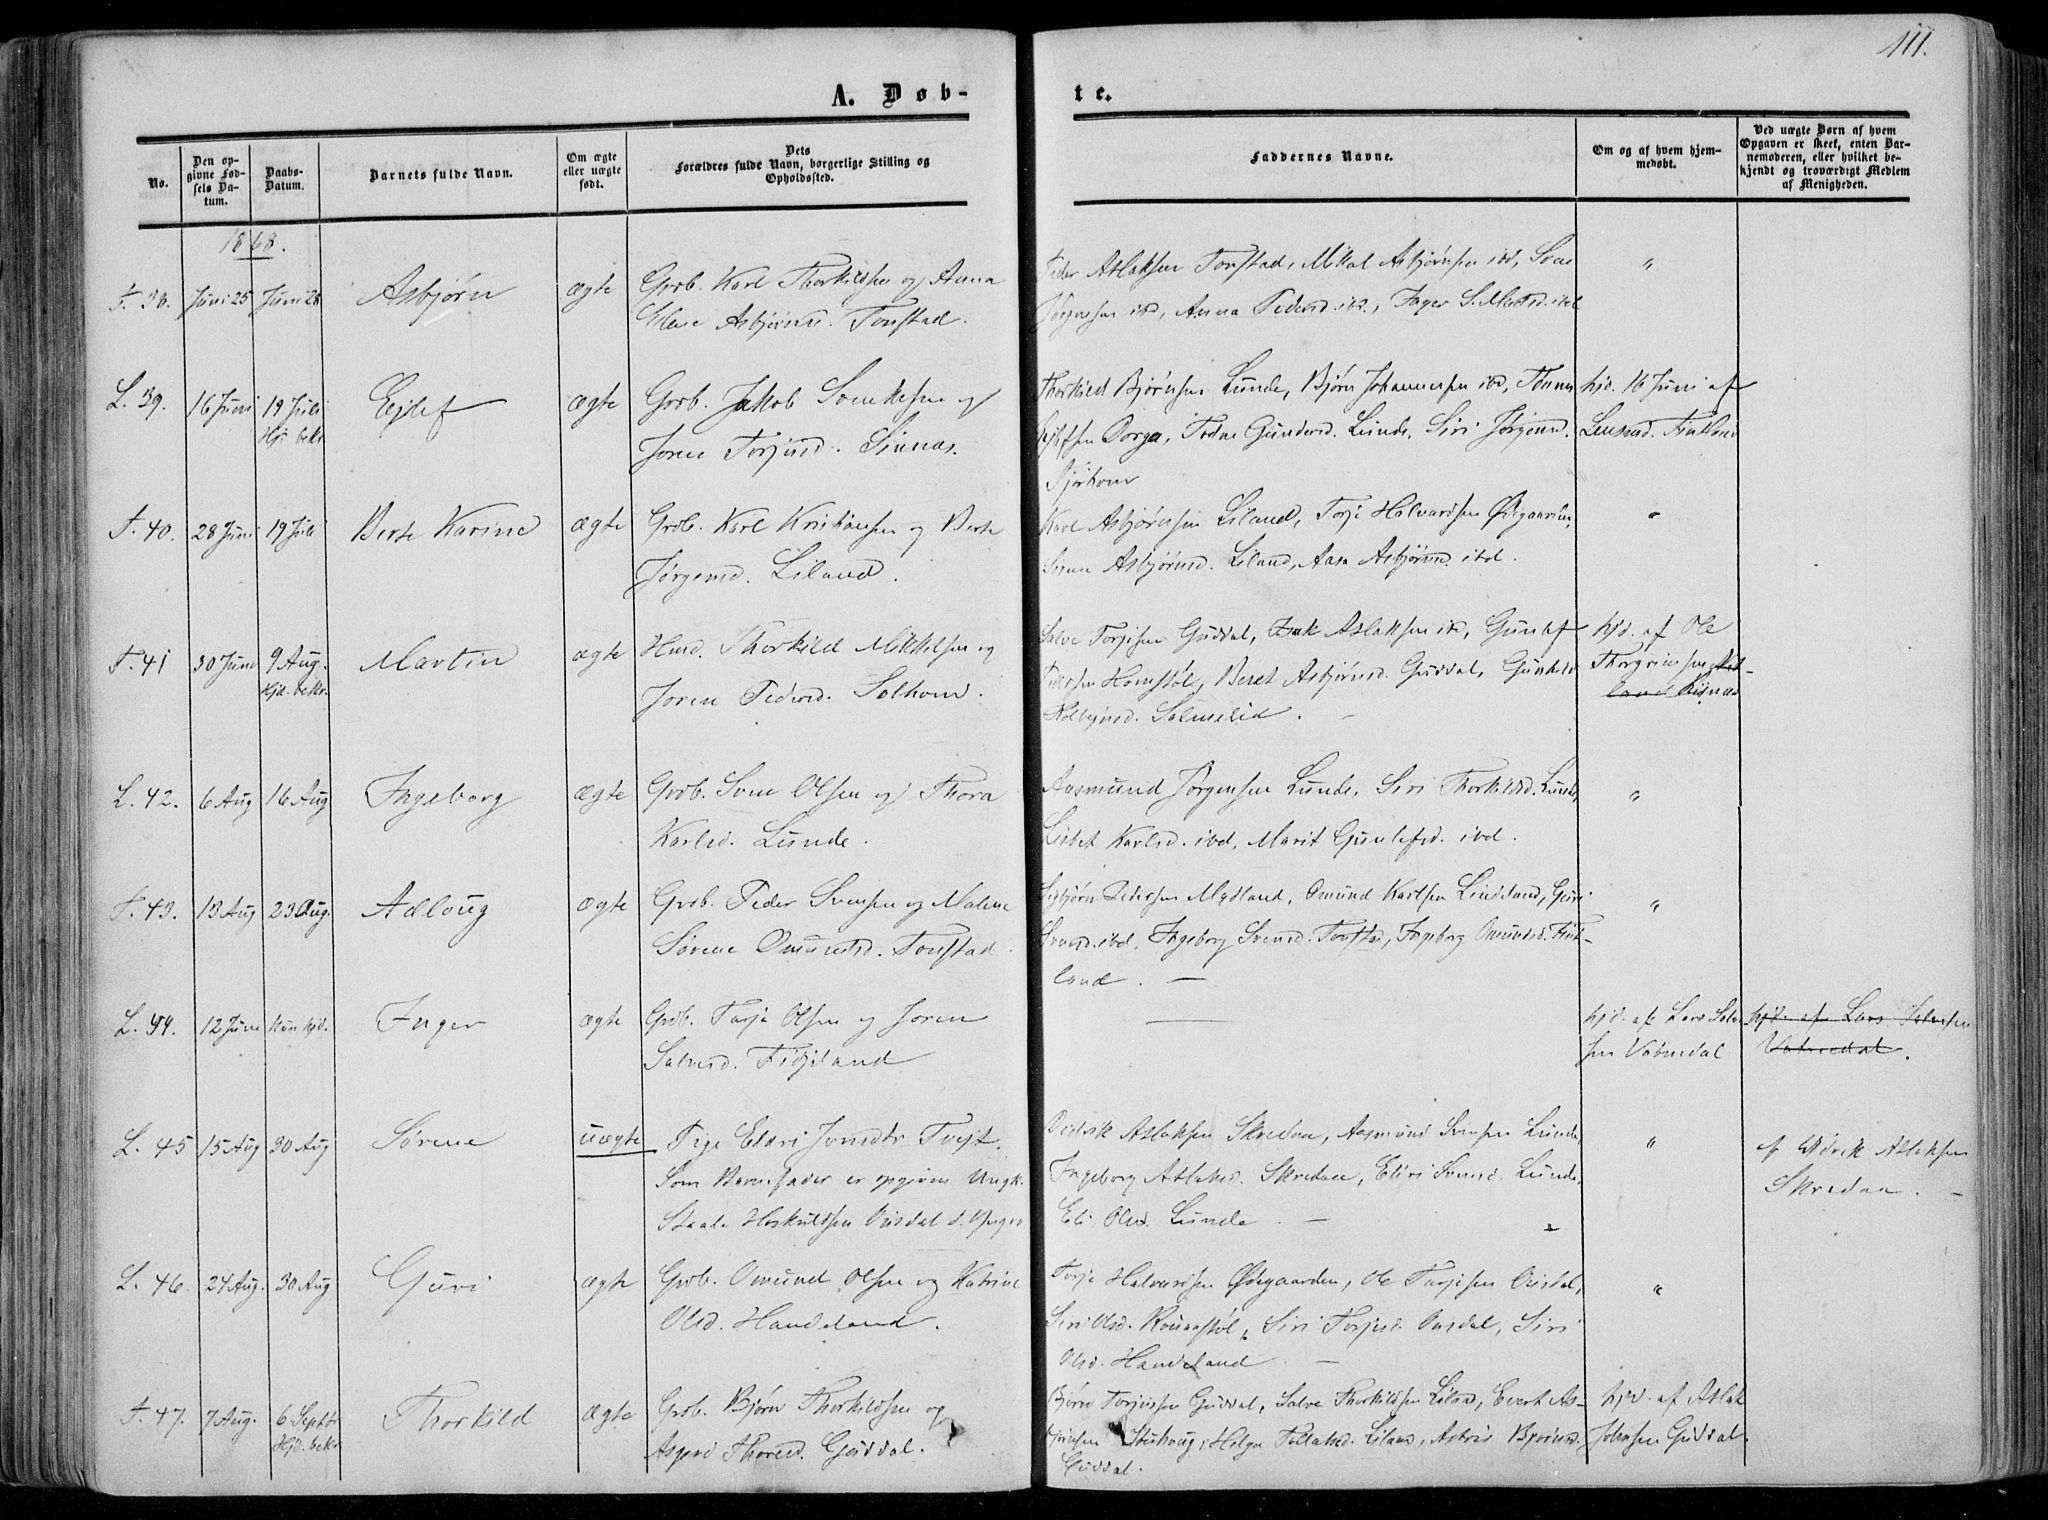 111.
A. Døb-
te.
No.
Den op-
givne Fød-
sels Da-
tum.
Daabs-
Datum.
Barnets fulde Navn.
Om ægte
eller uægte
født.
Dets
Forældres fulde Navn, borgerlige Stilling og
Opholdssted.
Faddernes Navne.
Om og af hvem hjem-
medøbt.
Ved uægte Børn af hvem
Opgaven er skeet, enten Bar-
nemoderen, eller hvilket be-
kjendt og troværdigt Medlem
af Menigheden.
1868.
Juni 25 Juni 28 Asbjørn ægte Grdb. Karl Thorkildsen og Anna
Elene Asbjørnsd. Tonstad.
Peder Aslaksen Tonstad, Mikal Asbjørnsen ibd, Sven
Jørgensen ibd, Anna Pedersd. ibd., Inger S. ibd
"
L. 39. 16 Juni 19 Juli Ejlef ægte Gdb. Jakob Svenkesen og
Hjd. bekr.
Joren Torjusd. Sinnæs.
Thorkild Bjørnsen Lunde, Bjørn Johannesen ibd, Tønnes
Ejlefsen Dorga, Gundersd. Lunde, Siri Jørgensd.
hjd. 16 Juni af
T. 40. 28 Juni 19 Juli Berte Karine ægte Grdb. Karl Kristiansen og Berte
Jørgensd. Liland.
Karl Asbjørnsen Liland, Torje Halvardsen Ødgaarden,
Sirene Asbjørnsd. Liland, Aasa Asbjørnsd. ibd.
"
T. 41 30 Juni 9 Aug. Martin ægte Husd. Thorkild Mikkelsen og
Hjd. bekr.
Joren Pedersd. Solhom.
Salve Torjisen Guddal, Isak Aslaksen ibd, Gunlef
Pedersen Homstøl, Beret Asbjørnsd. Guddal, Gunhild
Salmelid.
hjd. af Ole
Thorgrimsen
L. 42. 6 Aug 16 Aug Ingeborg ægte Grdb. Sven Olsen og Thora
Karlsd. Lunde.
Aasmund Jørgensen Lunde, Siri Thorkildsd. Lunde,
Lisbet Karlsd. ibd, Marit Gunlefsd. ibd.
"
T. 43. 13 Aug 23 Aug. Adloug ægte Grdb. Peder Svensen og Malene
Sørene Omundsd. Tonstad.
Sigbjørn Pedersen Mydland, Omund Karlsen Lindland, Guri
Svensd. ibd, Ingeborg Svensd. Tonstad, Ingeborg Omundsd. Fint-
land. —
"
L. 44. 12 Juni kun hjd. Inger ægte Grdb. Tarje Olsen og Joren
Salvesd. Fidjeland
hjd. af Lars Salve-
sen Vatnedal
hjd. af Lars Salvesen
Vatnedal.
L. 45 15 Aug 30 Aug Sørene uægte Pige Eldri Tvejt.
Som Barnefader er opgiven Ungk.
Staale Hoskuldsen Ousdal d. yngre
Didrik Aslaksen Skredaa, Aasmund Svensen Lunde,
Ingeborg Aslaksd. Skredaa, Eldri Svensd. Lunde,
Eli Olsd. Lunde. —
"
af Didrik Aslaksen
Skredaa. —
L. 46. 24 Aug. 30 Aug Guri ægte Grdb. Omund Olsen og Katrine
Olsd. Handeland.
Torje Halvardsen Ødegaarden, Ole Tarjesen Ousdal,
Siri Olsd. Siri Torjesd. Ousdal, Siri
Olsd. Handeland. —
"
T. 47. 7 Aug. 6 Septbr Thorkild ægte Grdb. Bjørn Thorkildsen og
Hjd. bekr.
Asgerd Thoresd. Guddal.
Bjørn Torjussen Guddal, Salve Thorkildsen Liland, Evert As-
bjørnsen Stuhaug, Helga Tollaksd. Liland, Astrid Bjørnsd.
Guddal.
hjd. af Aslak
Johnsen Guddal.